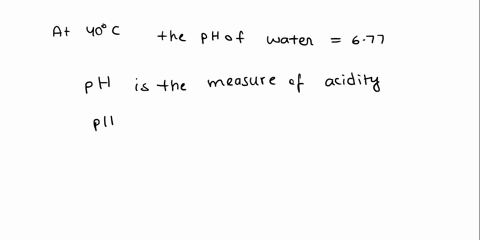 At 40°C the pH of water = 6.77
pH is the measure of acidity
pH